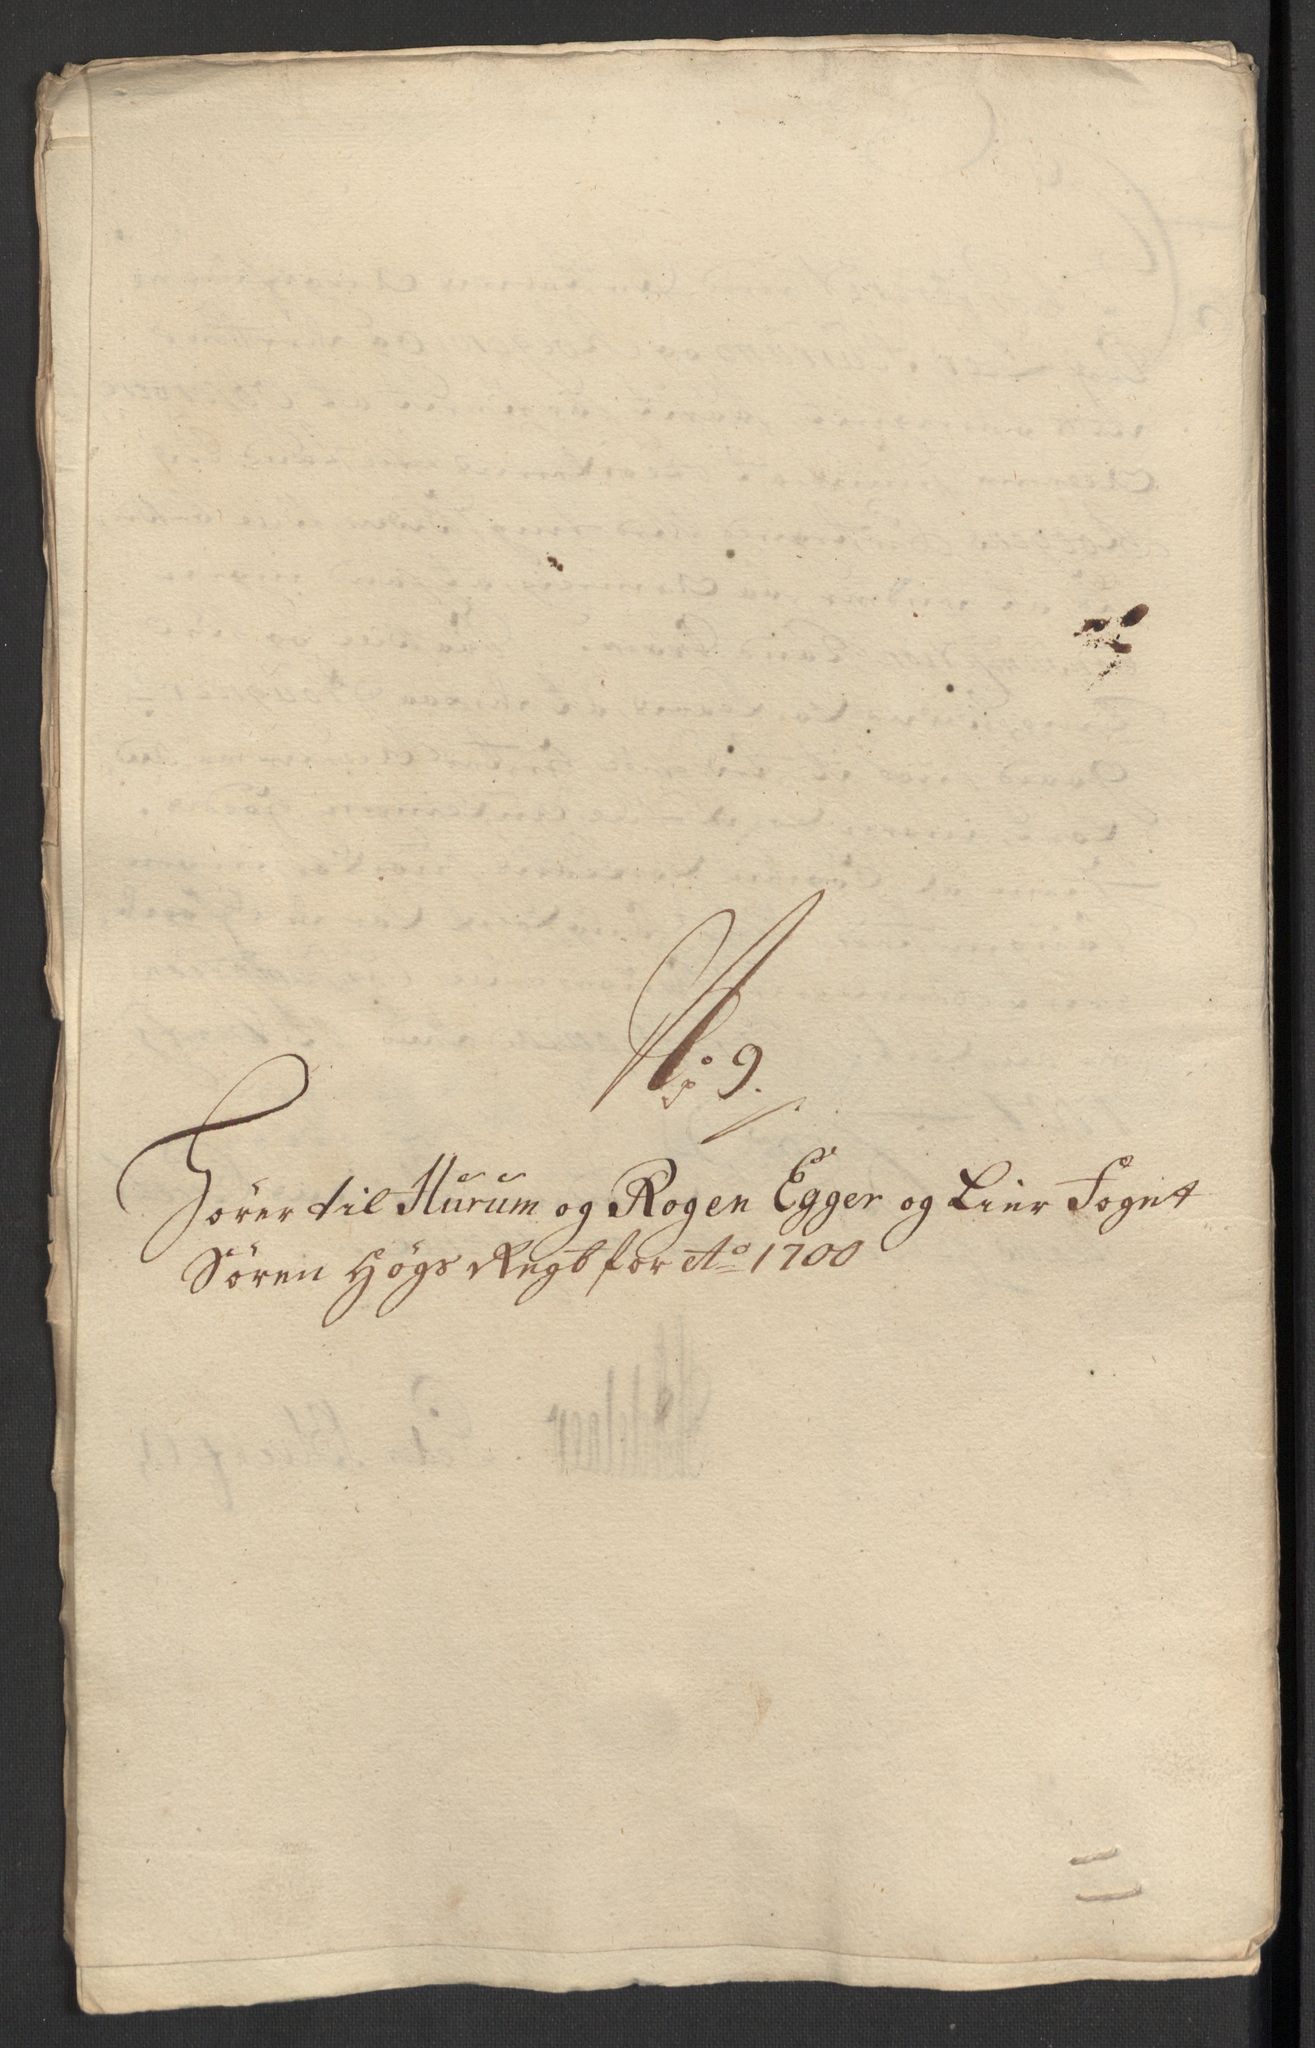 No 9.
Hörer til Hurum og Rogen Egger og Lier Fogst
Sören Högs Regb for Ao 1700